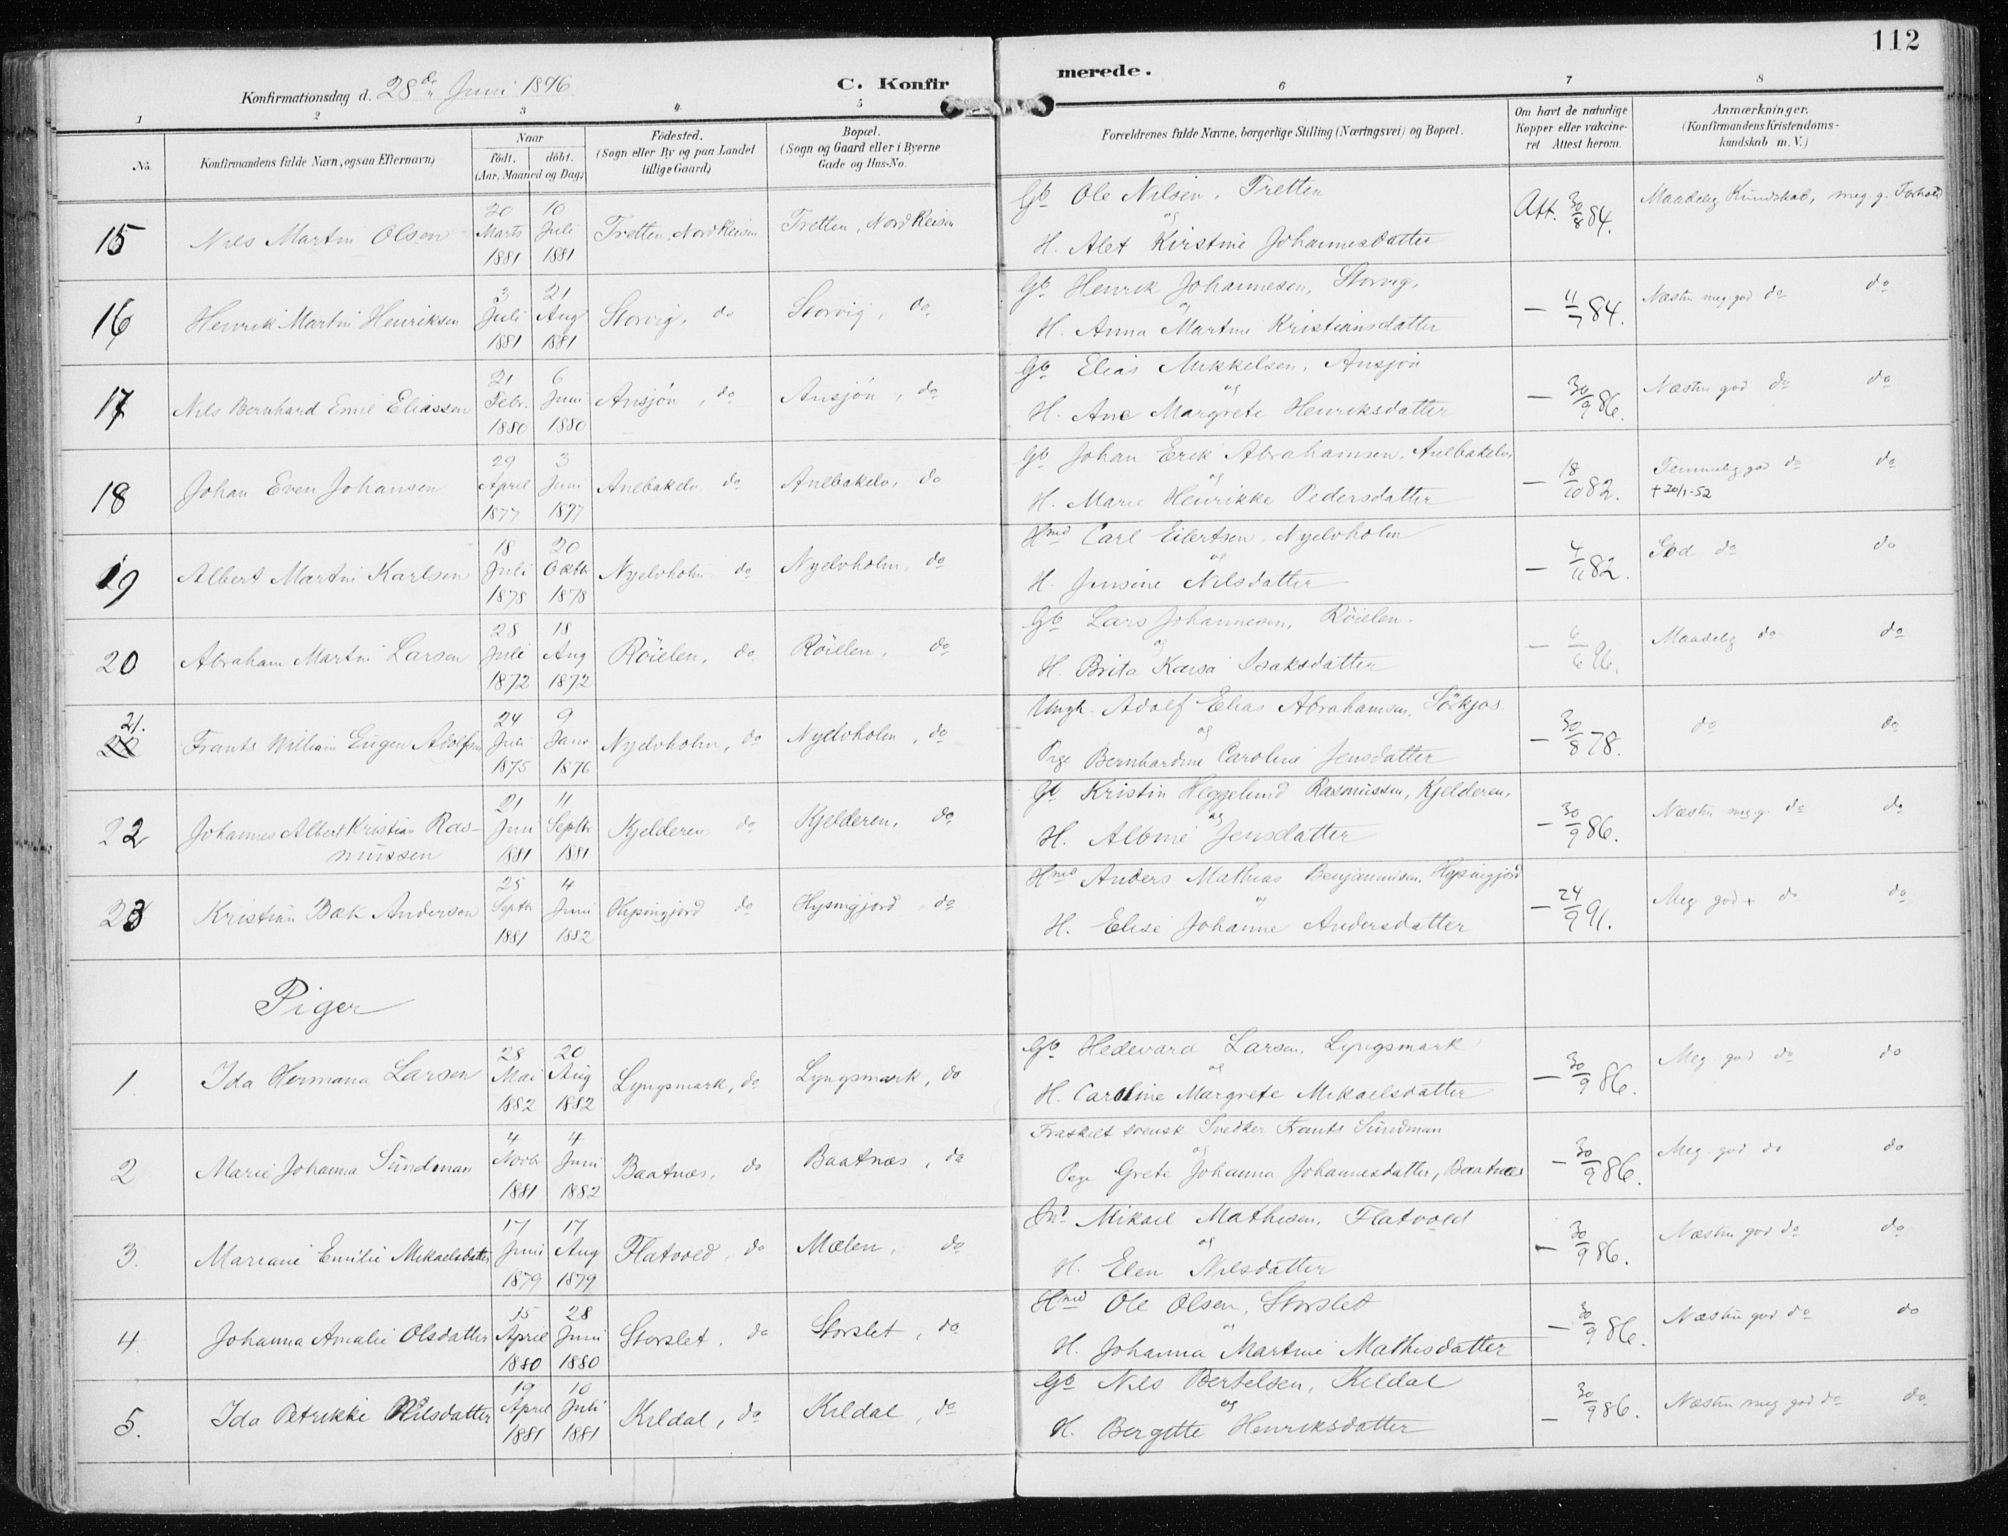 112
Konfirmationsdag d. 28de Juni 1896
C. Konfirmerede.
1 2 3 4 5 6 7 8
No.
Konfirmandens fulde Navn, ogsaa Efternavn,
Naar
født. døbt.
(Aar, Maaned og Dag,)
Födested.
(Sogn eller By og paa Landet
tillige Gaard,)
Bopæl.
(Sogn og Gaard eller i Byerne
Gade og Hus-No.
Forældrenes fulde Navne, borgerlige Stilling (Næringsvei) og Bopæl.
Om havt de naturlige
Kopper eller vakcine-
ret Attest herom.
Anmærkninger.
(Konfirmandens Kristendoms-
kundskab m. V.)
15 Nils Martin Olsen 20 Marts 1881 10 Juli 1881 Tretten, Nord Reisen Tretten, Nord Reisen
Gb Ole Nilsen, Tretten
og
H. Alet Kirstine Johannesdatter
Att. 30/8 84. Maadelig Kundskab, meg g. Forhold
16 Henrik Martin Henriksen 3 Juli 1881 21 Aug 1881 Storvig, do Storvig, do
Gb Henrik Johannesen, Storvig,
og
H. Anna Martine Kristiansdatter
— 11/7 84. Næsten meg god do do
17 Nils Bernhard Emil Eliassen 21 Febr. 1880 6 Juni 1880 Ansjön, do Ansjön, do
Gb Elias Mikkelsen, Ansjön
og
H. Ane Margrete Henriksdatter
— 30/9 86. Næsten god do do
18 Johan Even Johansen 29 April 1877 3 Juni 1877 Anebakelv, do Anebakelv, do
Gb Johan Erik Abrahamsen, Anebakelv,
og
H. Marie Henrikke Pedersdatter
— 18/10 82. Temmelig god do do
+ 20/1-52
19 Albert Martin Karlsen 18 Juli 1878 20 Octbr 1878 Nyelvholm do Nyelvholm, do
Hmd Carl Eilertsen, Nyelvholm
og
H. Jensine Nilsdatter
— 4/11 82. God do do
20 Abraham Martin Larsen 28 Juli 1872 18 Aug 1872 Röielen, do Röielen, do
Gb Lars Johannesen, Röielen.
og
H. Brita Kaisa Isaksdatter
— 6/6 96. Maadelig do do
21. Frants William Eugen Adolfsen 24 Juli 1875 9 Janr 1876 Nyelvholm, do Nyelvholm, do
Ungk. Adolf Elias Abrahamsen, Sörkjos
og
Pige Bernhardine Caroline Jensdatter
— 30/8 78. do do
22 Johannes Albert Kristian Ras-
mussen 21 Juni 1881 11 Septbr 1881 Kjelderen do Kjelderen, do
Gb Kristin Heggelund Rasmussen, Kjelderen,
og
H. Albine Jensdatter
— 30/9 86. Næsten meg g. do do
23 Kristian Bæk Andersen 25 Septbr 1881 4 Juni 1882 Hysingjord do Hysingjord do
Hmd Anders Mathias Benjaminsen, Hysingjord
og
H. Elise Johanne Andersdatter
— 24/9 91. Meg god + do do
Piger
1 Ida Hermana Larsen 28 Mai 1882 20 Aug 1882 Lyngsmark, do Lyngsmark, do
Gb Hedevard Larsen, Lyngsmark
og
H. Caroline Margrete Mikaelsdatter
— 30/9 86. Meg god do do
2 Marie Johanna Sundman 4 Novbr 1881 4 Juni 1882 Baatnæs, do Baatnæs, do
Fraskilt svensk Snedker Frants Sundman
og
Pige Grete Johanna Johannesdatter, Baatnæs
— 30/9 86. Meg god do do
3. Mariane Emilie Mikaelsdatter 17 Juni 1879 17 Aug 1879 Flatvold, do Mælen, do
Mikael Mathisen, Flatvold
og
H. Elen Nilsdatter
— 30/9 86. Næsten god do do
4. Johanna Amalie Olsdatter 15 April 1880 28 Juni 1880 Storslet, do Storslet, do
Hmd Ole Olsen, Storslet
og
H. Johanna Martine Mathisdatter
— 30/9 86. Næsten god do do
5. Ida Petrikke Nilsdatter 19 April 1881 10 Juli 1881 Kildal, do Kildal, do
Gb Nils Bertelsen, Kildal
og
H. Bergitte Henriksdatter
— 30/9 86. Næsten meg god do do